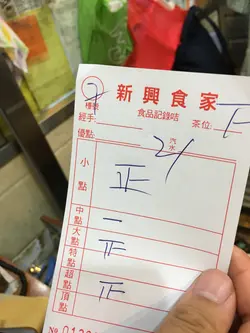 新興食家
食品記錄咭
檯號 7
經手: 茶位:
優點:
汽水 2/
小點 正
中點 一
大點 正
特點
超點 正
頂點
№